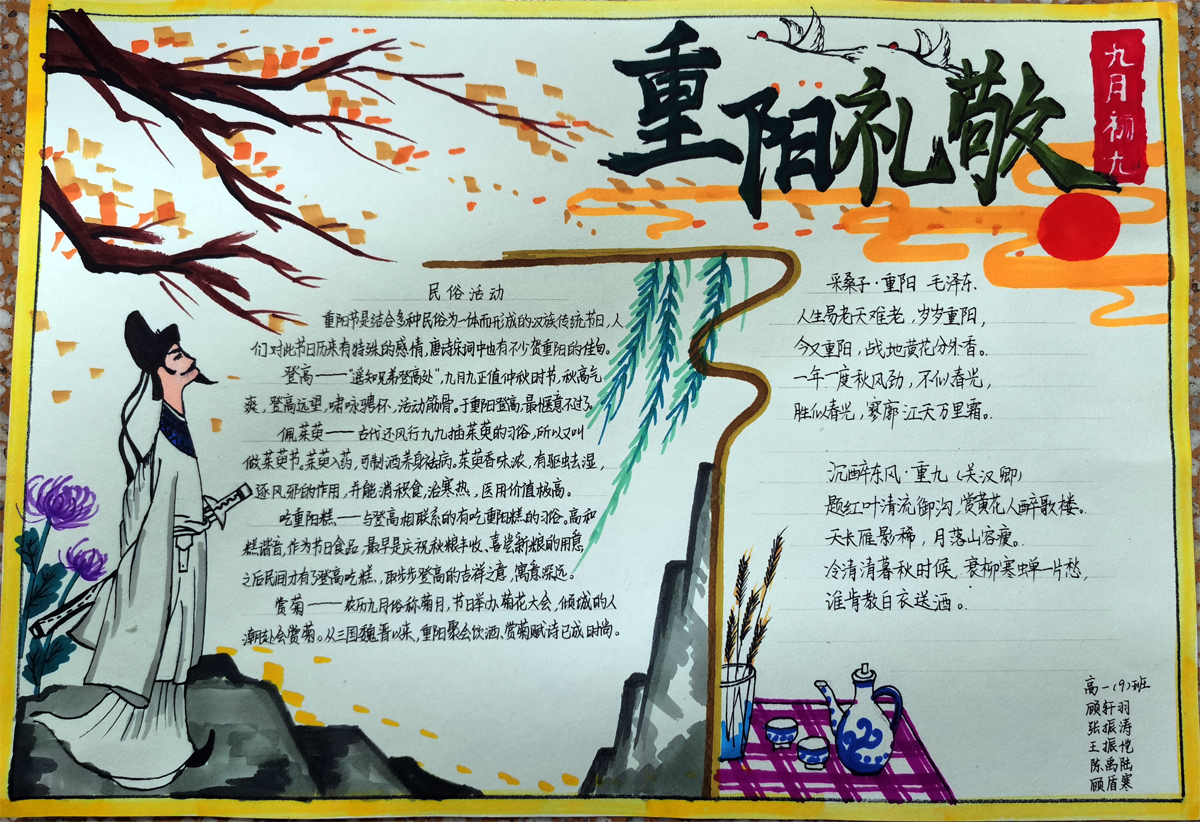 重阳礼敬
九月初九
民俗活动
重阳节是结合多种民俗为一体而形成的汉族传统节日，人
们对此节日历来有特殊的感情，唐诗宋词中也有不少贺重阳的佳句。
登高——“遥知兄弟登高处”，九月九正值仲秋时节，秋高气
爽，登高远望，啸咏骋怀，活动筋骨。于重阳登高，最惬意不过了。
佩茱萸——古代还风行九九插茱萸的习俗，所以又叫
做茱萸节。茱萸入药，可制酒养身祛病。茱萸香味浓，有驱虫去湿，
逐风邪的作用，并能消积食，治寒热，医用价值极高。
吃重阳糕——与登高相联系的有吃重阳糕的习俗。高和
糕谐音，作为节日食品，最早是庆祝秋粮丰收、喜尝新粮的用意，
之后民间才有了登高吃糕，取步步登高的吉祥之意，寓意深远。
赏菊——农历九月俗称菊月，节日举办菊花大会，倾城的人
潮赴会赏菊。从三国魏晋以来，重阳聚会饮酒、赏菊赋诗已成时尚。
采桑子·重阳 毛泽东.
人生易老天难老，岁岁重阳，
今又重阳，战地黄花分外香。
一年一度秋风劲，不似春光，
胜似春光，寥廓江天万里霜。
沉醉东风·重九（关汉卿）
题红叶清流御沟，赏黄花人醉歌楼。
天长雁影稀，月落山容瘦。
冷清清暮秋时候，衰柳寒蝉一片愁，
谁肯教白衣送酒。
高一（9）班
顾轩羽
张振涛
王振恺
陈禹陆
顾盾寒